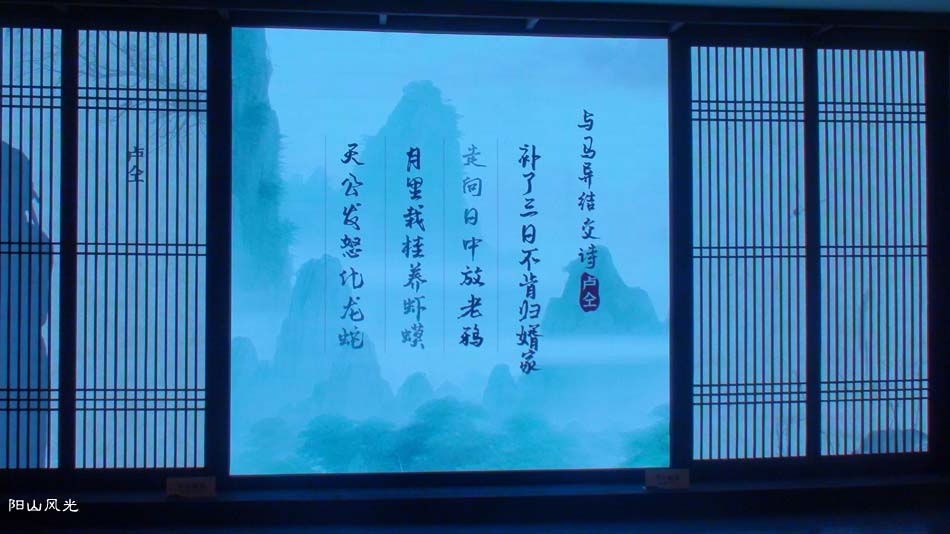 与马异结交诗
卢仝
补了三日不肯归婿家
走向日中放老鸦
月里栽桂养虾蟆
天公发怒化龙蛇
卢仝
阳山风光